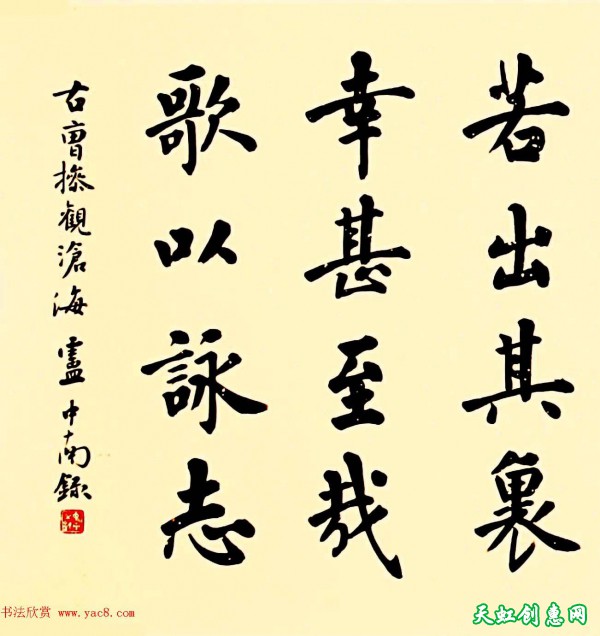 若出其裏
幸甚至哉
歌以詠志
古曹操觀滄海 盧中南錄
书法欣赏 www.yac8.com
天虹创惠网